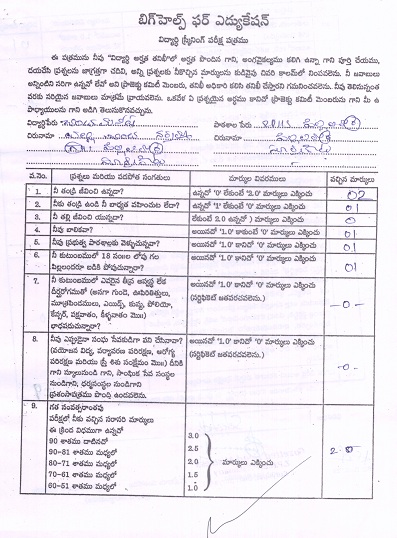 బిగ్‌హెల్ప్ ఫర్ ఎడ్యుకేషన్
విద్యార్థి స్క్రీనింగ్ పరీక్ష పత్రము
ఈ పత్రమును నీవు "విద్యార్థి అర్హత తనిఖీ"లో అర్హత పొందిన గాని, అంగవైకల్యము కలిగి ఉన్నా గాని పూర్తి చేయుము,
దయచేసి ప్రశ్నలను జాగ్రత్తగా చదివి, అన్ని ప్రశ్నలకు నీకొచ్చిన మార్కులను కుడివైపు చివరి కాలమ్‌లో నింపవలెను. నీ జవాబులు
అన్నింటిని సరిగా ఉన్నవో లేవో అని ప్రాజెక్టు కమిటీ మెంబరు, తనిఖీ అధికారి కలిసి తనిఖీ చేస్తారని గమనించవలెను. నీవు తెలిసినంత
వరకు సరియైన జవాబులు మాత్రమే వ్రాయవలెను. ఒకవేళ ఏ ప్రశ్నయైన అర్థము కానిచో ప్రాజెక్టు కమిటీ మెంబరును గాని మీ ఉ
పాధ్యాయులను గాని అడిగి తెలుసుకొనవచ్చును.
విద్యార్థిపేరు పాఠశాల పేరు
చిరునామా చిరునామా
వ.నెం. ప్రశ్నలు మరియు పరపోత సంగతులు మార్కుల వివరములు వచ్చిన మార్కులు
1. నీ తండ్రి జీవించి ఉన్నాడా? ఉన్నచో '0' లేకుంటే '2.0' మార్కులు ఎక్కించు 02
2. నీకు తండ్రి ఉండి నీ బాధ్యత వహించుట లేదా? ఉన్నచో '1' లేకుంటే '0' మార్కులు ఎక్కించు 01
3. నీ తల్లి జీవించి యున్నదా? లేకుంటే 2.0 ఉన్నచో ) మార్కులు ఎక్కించు 0
4. నీవు బాలికవా? అయినచో '1.0' కాకుంటే '0' మార్కులు ఎక్కించు 01
5. నీవు ప్రభుత్వ పాఠశాలకు వెళ్ళుచున్నావా? అయినచో '1.0' కానిచో '0' మార్కులు ఎక్కించు 01
6. నీ కుటుంబములో 18 సం॥ల లోపు గల అయినచో '1.0' కానిచో '0' మార్కులు ఎక్కించు 01
పిల్లలందరూ బడికి పోవుచున్నారా?
7. నీ కుటుంబములో ఎవరైన తీవ్ర అస్వస్థ లేక అయినచో '1.0' కానిచో '0' మార్కులు ఎక్కించు -0-
దీర్ఘరోగముతో (అనగా గుండె, ఊపిరితిత్తులు, (సర్టిఫికెట్ జతపరచవలెను.)
మూత్రపిండములు, ఎయిడ్స్, కుష్ఠు, పోలియో,
కేన్సర్, పక్షవాతం, కీళ్ళవాతం మొ॥)
బాధపడుచున్నారా?
8. నీవు ఎప్పుడైనా సంఘ సేవకుడిగా పని చేసినావా? అయినచో '1.0' కానిచో '0' మార్కులు ఎక్కించు -0-
(వయోజన విద్య, పర్యావరణ పరిరక్షణ, ఆరోగ్య (సర్టిఫికెట్ జతపరచవలెను.)
పరిరక్షణ మరియు స్త్రీ శిశు సంక్షేమం మొ॥) దీనికి
గాని స్కూలునుండి గాని, సాంఘిక సేవ సంస్థల
నుండిగాని, ధర్మసంస్థల నుండిగాని
ప్రశంసాపత్రము పొంది ఉండవలెను.
9. గత సంవత్సరాంతపు
పరీక్షలో నీకు వచ్చిన సరాసరి మార్కులు
ఈ క్రింద విధముగా ఉన్నచో
90 శాతము దాటినచో 3.0
90-81 శాతము మధ్యలో 2.5
80-71 శాతము మధ్యలో 2.0 మార్కులు ఎక్కించు 2-0
70-61 శాతము మధ్యలో 1.5
60-51 శాతము మధ్యలో 1.0